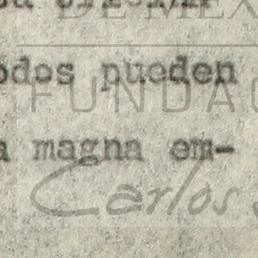 DE MÉX
odos pueden
FUNDAC
a magna em-
Carlos S